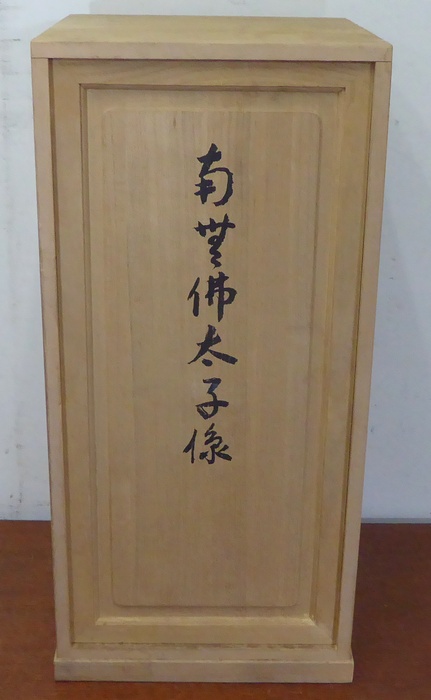 南無佛太子像